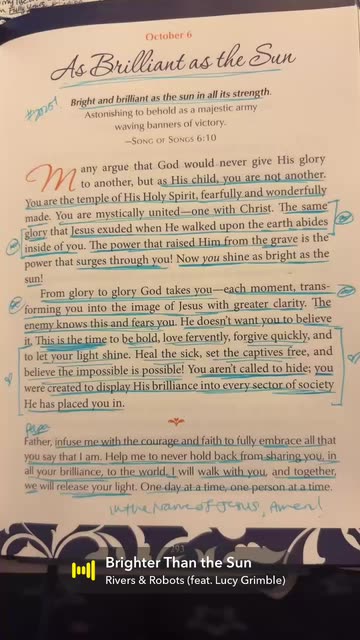 October 6
As Brilliant as the Sun
#2025!
Bright and brilliant as the sun in all its strength.
Astonishing to behold as a majestic army
waving banners of victory.
—SONG OF SONGS 6:10
Many argue that God would never give His glory
to another, but as His child, you are not another.
You are the temple of His Holy Spirit, fearfully and wonderfully
made. You are mystically united—one with Christ. The same
glory that Jesus exuded when He walked upon the earth abides
inside of you. The power that raised Him from the grave is the
power that surges through you! Now you shine as bright as the
sun!
From glory to glory God takes you—each moment, trans-
forming you into the image of Jesus with greater clarity. The
enemy knows this and fears you. He doesn't want you to believe
it. This is the time to be bold, love fervently, forgive quickly, and
to let your light shine. Heal the sick, set the captives free, and
believe the impossible is possible! You aren't called to hide; you
were created to display His brilliance into every sector of society
He has placed you in.
Father, infuse me with the courage and faith to fully embrace all that
you say that I am. Help me to never hold back from sharing you, in
all your brilliance, to the world. I will walk with you, and together,
we will release your light. One day at a time, one person at a time.
in the name of Jesus, Amen!
293
Brighter Than the Sun
Rivers & Robots (feat. Lucy Grimble)